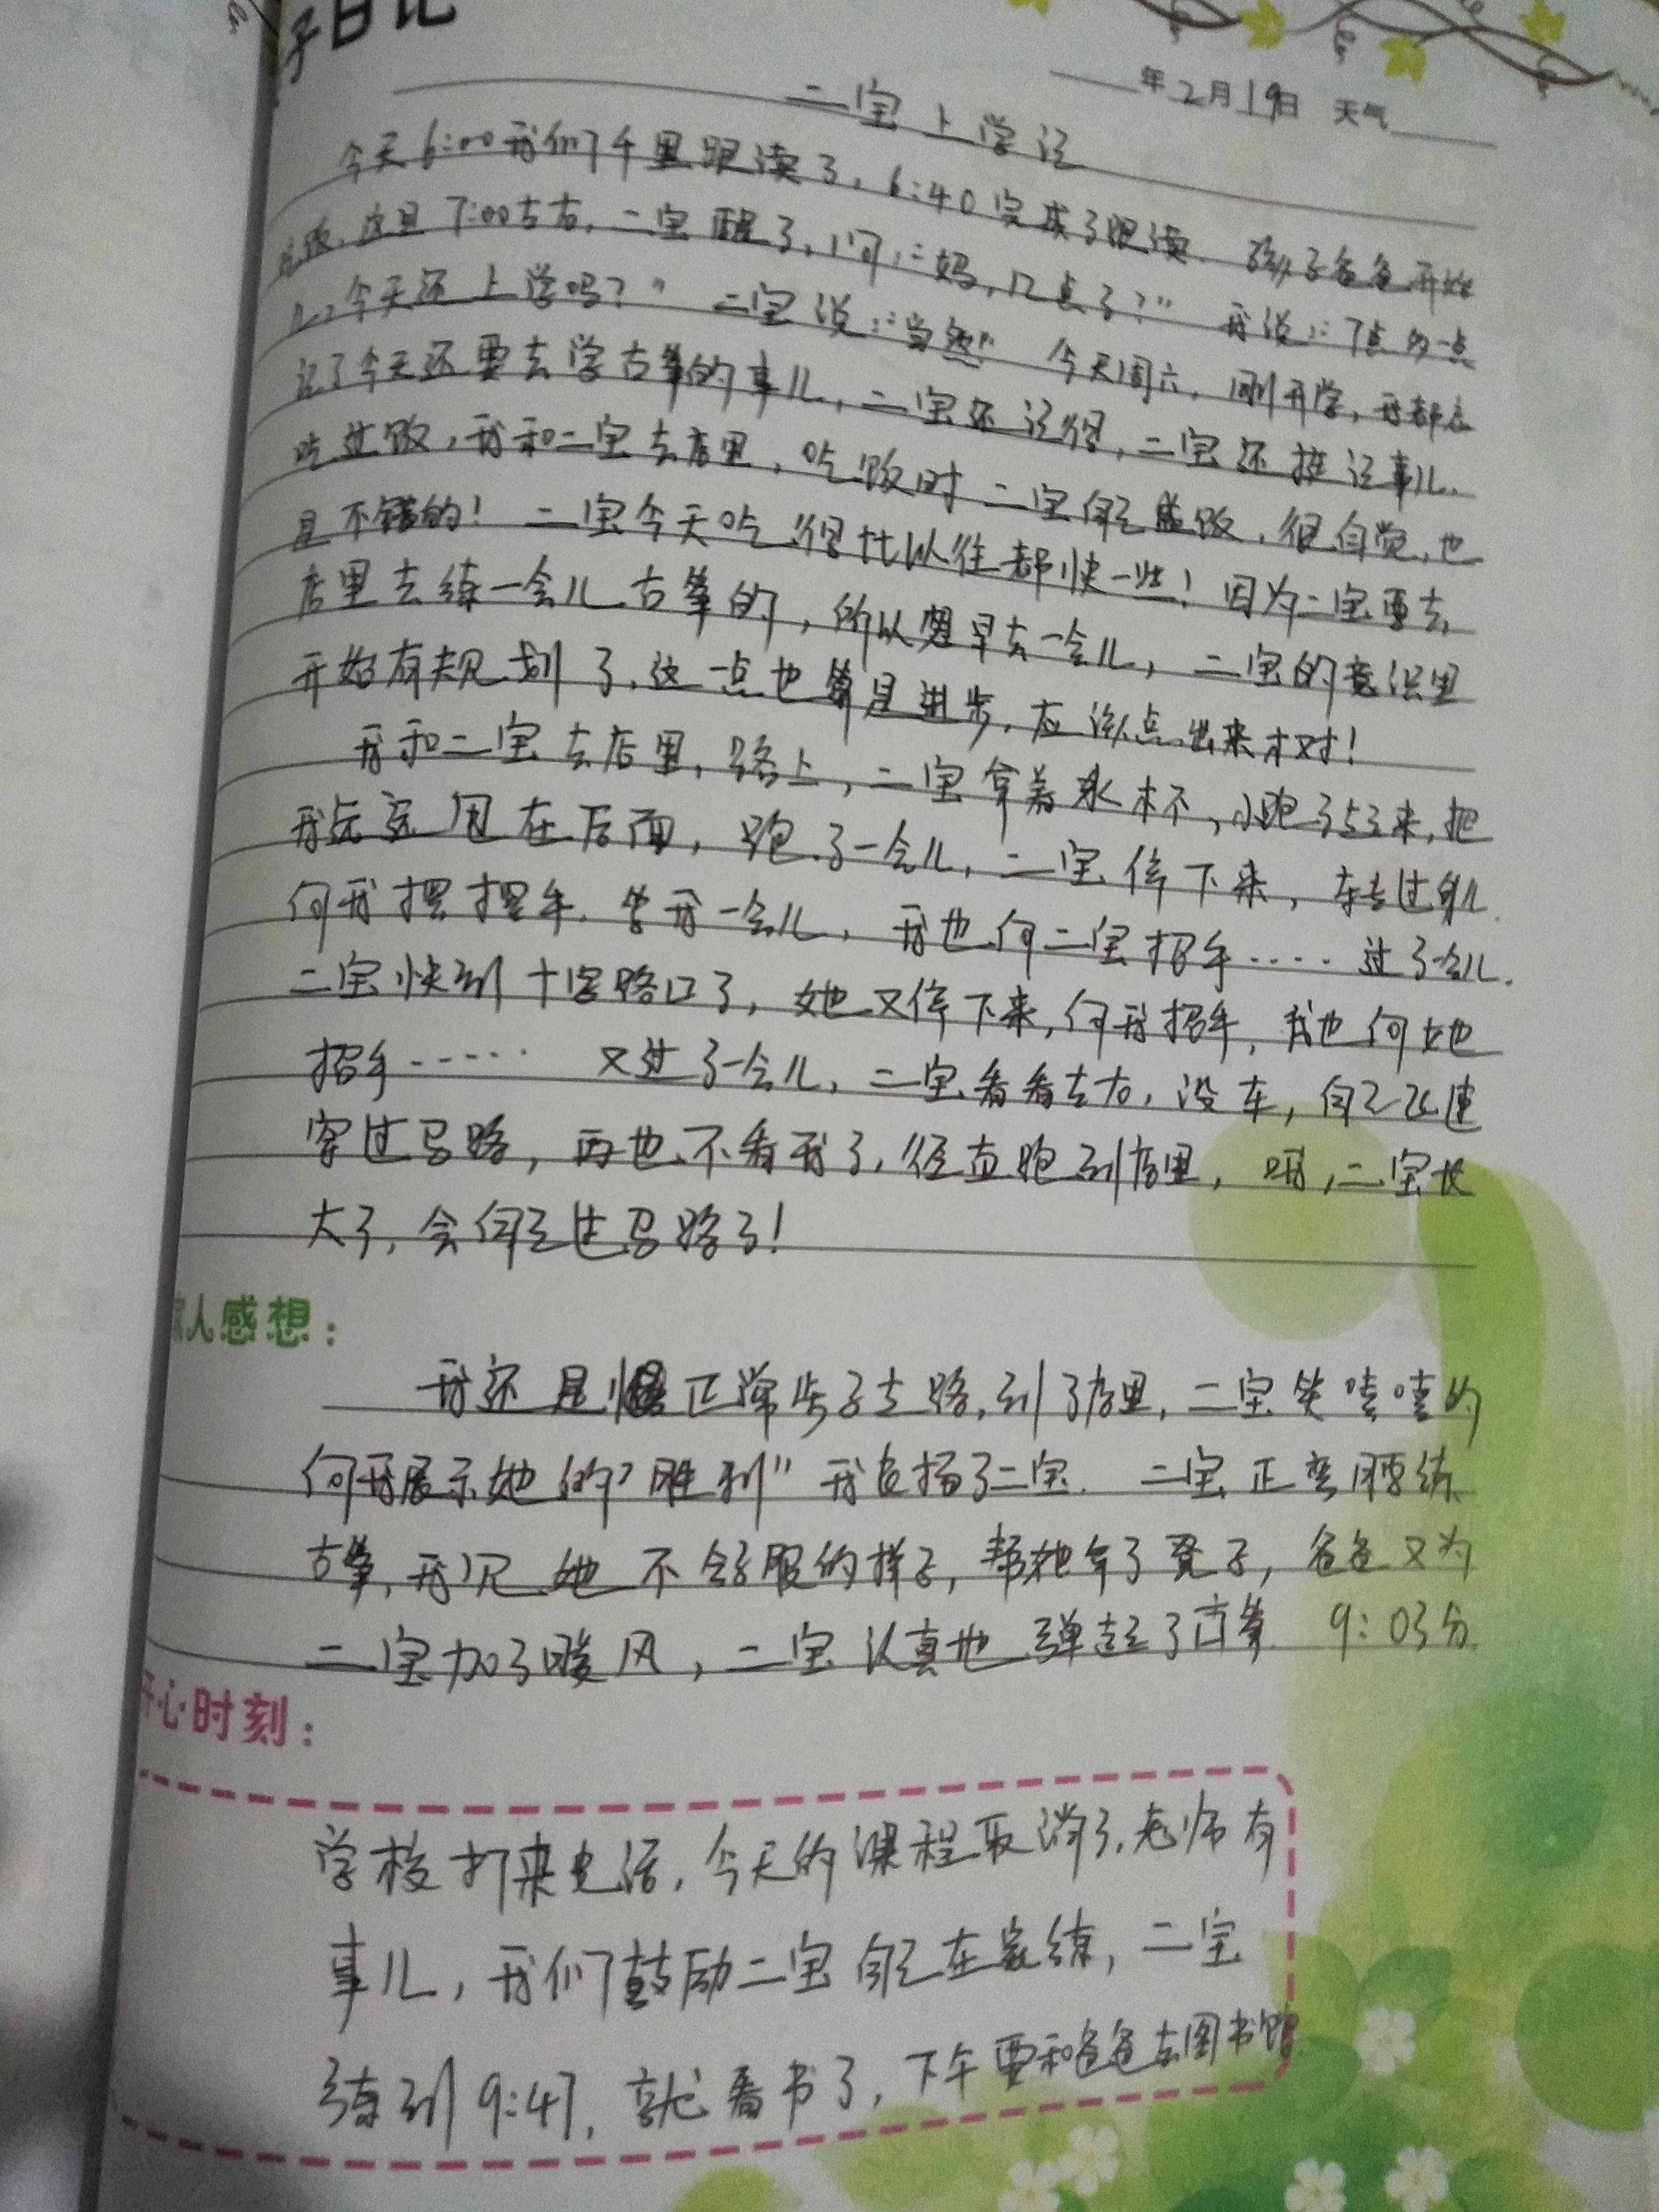 子日记
年2月19日 天气
二宝上学记
今天6:00我们千里跟读了,6:40完成了跟读.孩子爸爸开始
饭.这是7:00左右.二宝醒了,问:“妈,几点了?”我说:“7点多一点
儿,今天还上学吗?”二宝说:“当然”今天周六,刚开学,我都忘
记了今天还要去学古筝的事儿,二宝还记得,二宝还挺记事儿.
吃过饭,我和二宝去店里,吃饭时二宝自己盛饭,很自觉,也
是不错的!二宝今天吃得比以往都快一些!因为二宝要去
店里去练一会儿古筝的,所以想早去一会儿,二宝的意识里
开始有规划了,这一点也算是进步,应该点出来才对!
我和二宝去店里,路上,二宝拿着水杯,小跑了起来,把
我远远甩在后面,跑了一会儿,二宝停下来,转过身儿.
向我摆摆手.等我一会儿,我也向二宝招手……过了一会儿.
二宝快到十字路口了,她又停下来,向我招手,我也向她
招手……又过了一会儿,二宝看看左右,没车,自己飞速
穿过马路,再也不看我了,径直跑到店里,哦,二宝长
大了,会自己过马路了!
人感想:
我还是慢正常步子走路,到了店里,二宝笑嘻嘻的
向我展示她的“胜利”我表扬了二宝.二宝正弯腰练
古筝,我见她不舒服的样子,帮她拿了凳子,爸爸又为
二宝加了暖风,二宝认真地弹起了古筝 9:03分
开心时刻:
学校打来电话,今天的课程取消了,老师有
事儿,我们鼓励二宝自己在家练,二宝
练到9:47,就看书了,下午要和爸爸去图书馆